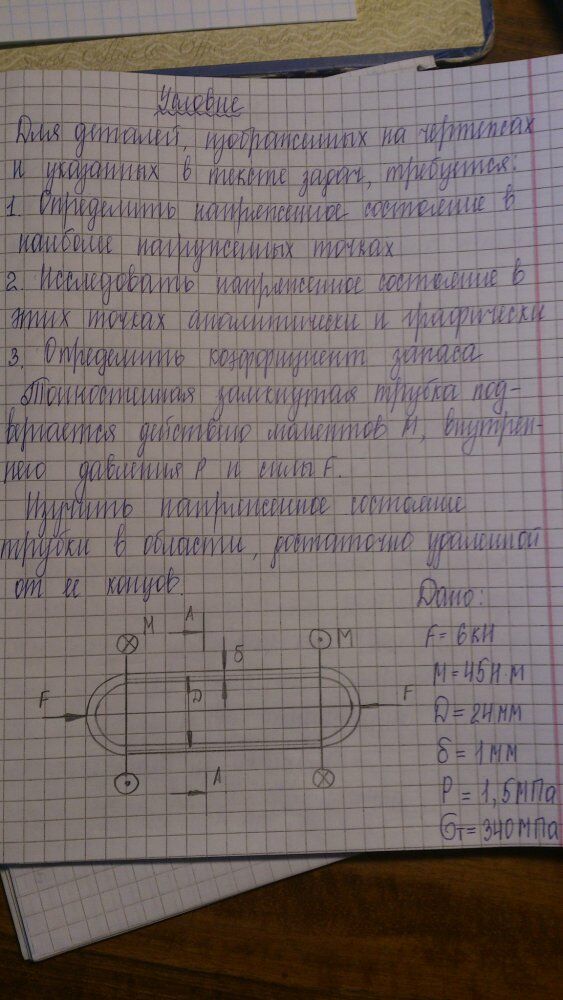 Условие
Для деталей, изображенных на чертежах
и указанных в тексте задач, требуется:
1. Определить напряженное состояние в
наиболее нагруженных точках
2. Исследовать напряженное состояние в
этих точках аналитически и графически
3. Определить коэффициент запаса
Тонкостенная замкнутая трубка под-
вергается действию моментов М, внутрен-
него давления Р и силы F.
Изучить напряженное состояние
трубки в области, достаточно удаленной
от ее концов.
Дано:
F = 6 кН
М = 45 Н м
Д = 24 мм
δ = 1 мм
Р = 1,5 МПа
σт = 340 МПа
М А δ М
F Д F
А